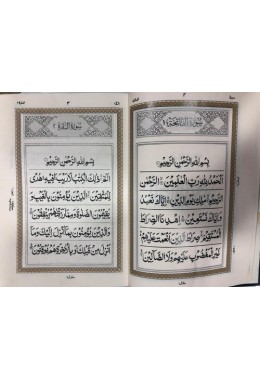 سورة الفاتحة
بسم الله الرحمن الرحيم
الحمد لله رب العلمين الرحمن
الرحيم ملك يوم الدين اياك نعبد
و اياك نستعين اهدنا الصراط
المستقيم صراط الذين انعمت عليهم
غير المغضوب عليهم ولا الضالين
سورة البقرة
بسم الله الرحمن الرحيم
الم ذلك الكتب لا ريب فيه هدى
للمتقين الذين يؤمنون بالغيب و
يقيمون الصلوة ومما رزقنهم ينفقون
والذين يؤمنون بما انزل اليك وما
انزل من قبلك وبالاخرة هم يوقنون